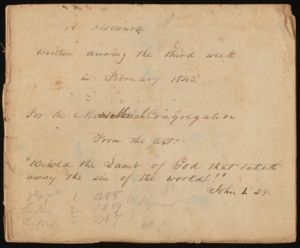 A Discourse
written during the third week
in February 1842
For the Congregation
From the text:
"Behold the Lamb of God that taketh
away the sin of the world!"
John 1. 29.
1. 208
209
207